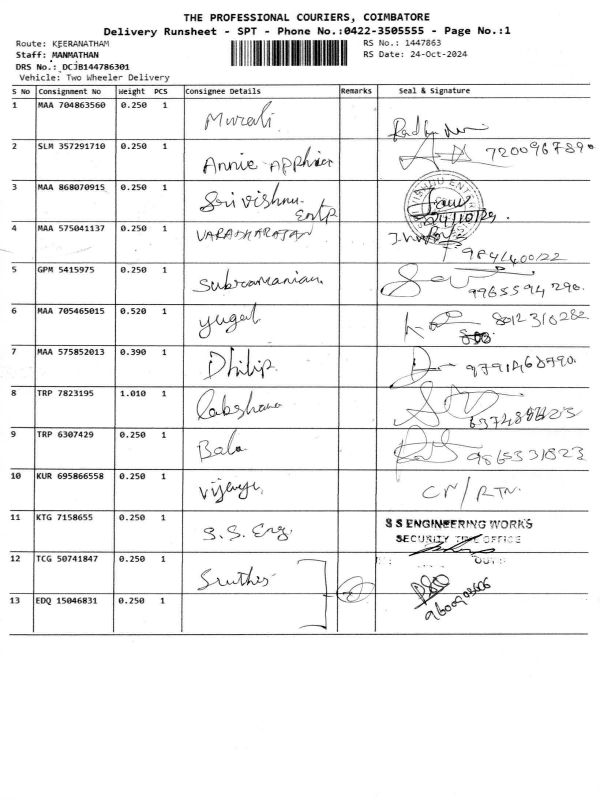 THE PROFESSIONAL COURIERS, COIMBATORE
Delivery Runsheet - SPT - Phone No.:0422-3505555 - Page No.:1
Route: KEERANATHAM RS No.: 1447863
Staff: MANMATHAN RS Date: 24-Oct-2024
DRS No.: DCJB144786301
Vehicle: Two Wheeler Delivery
S No Consignment No Weight PCS Consignee Details Remarks Seal & Signature
1 MAA 704863560 0.250 1 Murali
2 SLM 357291710 0.250 1 Annie
3 MAA 868070915 0.250 1 Sri vishnu Entp
24/10/24
4 MAA 575041137 0.250 1 VARADHARAJAN
5 GPM 5415975 0.250 1 Subramanian
9965594290
6 MAA 705465015 0.520 1 yugal 8012310282
7 MAA 575852013 0.390 1 Dhilip
8 TRP 7823195 1.010 1
9 TRP 6307429 0.250 1 Bala 9865331823
10 KUR 695866558 0.250 1 CN/RTN
11 KTG 7158655 0.250 1 S.S. Eng. S S ENGINEERING WORKS
SECURITY OFFICE
12 TCG 50741847 0.250 1
13 EDQ 15046831 0.250 1